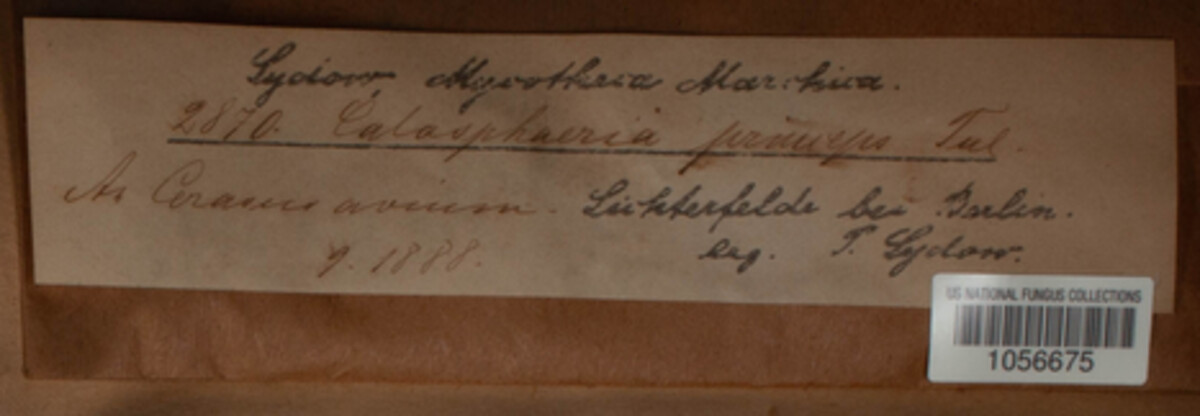 Sydow, Mycotheca Marchica.
2870. Calosphaeria princeps Tul.
An Cerasus avium. Lichterfelde bei Berlin.
9. 1888. leg. P. Sydow.
US NATIONAL FUNGUS COLLECTIONS
1056675